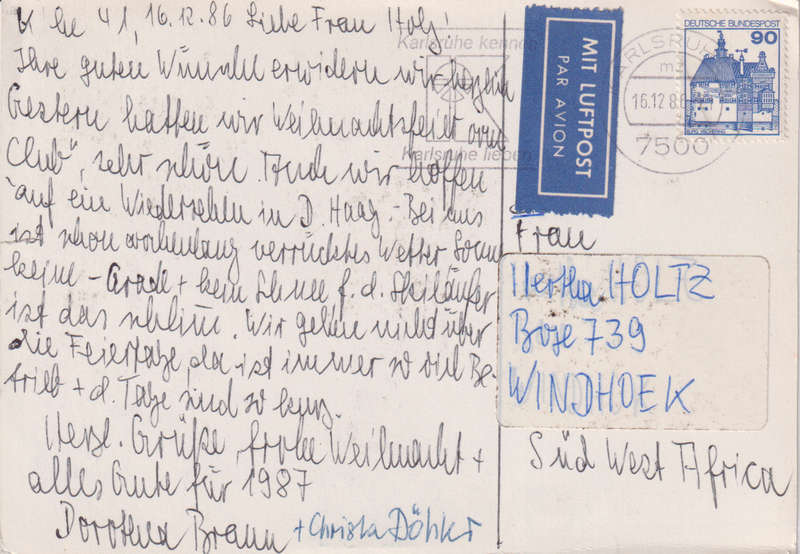 Khe 41, 16.12.86 Liebe Frau Holz!
Ihre guten Wünsche erwidern wir herzlich
Gestern hatten wir Weihnachtsfeier vom
Club", sehr schön. Auch wir hoffen
auf ein Wiedersehen in D. Haag.- Bei uns
ist schon wochenlang verrücktes Wetter Sonne
keine - Grade + kein Schnee f. d. Skiläufer
ist das schlim. Wir gehen nicht über
die Feiertage, da ist immer so viel Be-
trieb + d. Tage sind so kurz.
Herzl. Grüße, frohe Weihnacht +
alles Gute für 1987
Dorothea Braun + Christa Döhler
Karlsruhe kennen
Karlsruhe lieben
MIT LUFTPOST
PAR AVION
KARLSRUHE
mz
16.12.86
7500
DEUTSCHE BUNDESPOST
90
BURG VISCHERING
Frau
Hertha HOLTZ
Boxe 739
WINDHOEK
Süd West Africa